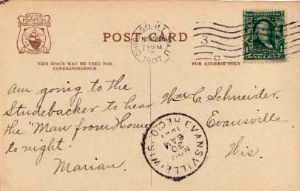 POST CARD
THIS SPACE MAY BE USED FOR
CORRESPONDENCE
FOR ADDRESS ONLY
1907
am going to the
Studebaker to hear
the "Man from Home"
to night.
Marian.
Wm C. Schneider.
Evansville
Wis.
EVANSVILLE, WIS.
REC'D.
NOV